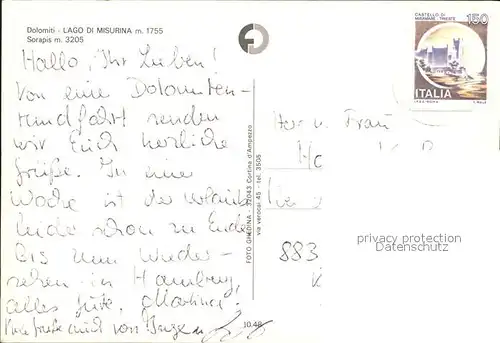 Dolomiti - LAGO DI MISURINA m. 1755
Sorapis m. 3205
Hallo, Ihr Lieben!
Von eine Dolomiten-
rundfahrt senden
wir Euch herzliche
Grüße. In einer
Woche ist der Urlaub
leider schon zu Ende.
Bis zum Wieder-
sehen in Hamburg,
alles Gute, Martina
von
FOTO GHEDINA - 32043 Cortina d'Ampezzo
via verocai 45 - tel. 3508
10.48
CASTELLO DI
MIRAMARE TRIESTE
150
ITALIA
Herr u. Frau
883
privacy protection
www.ansichtskartenversand.com